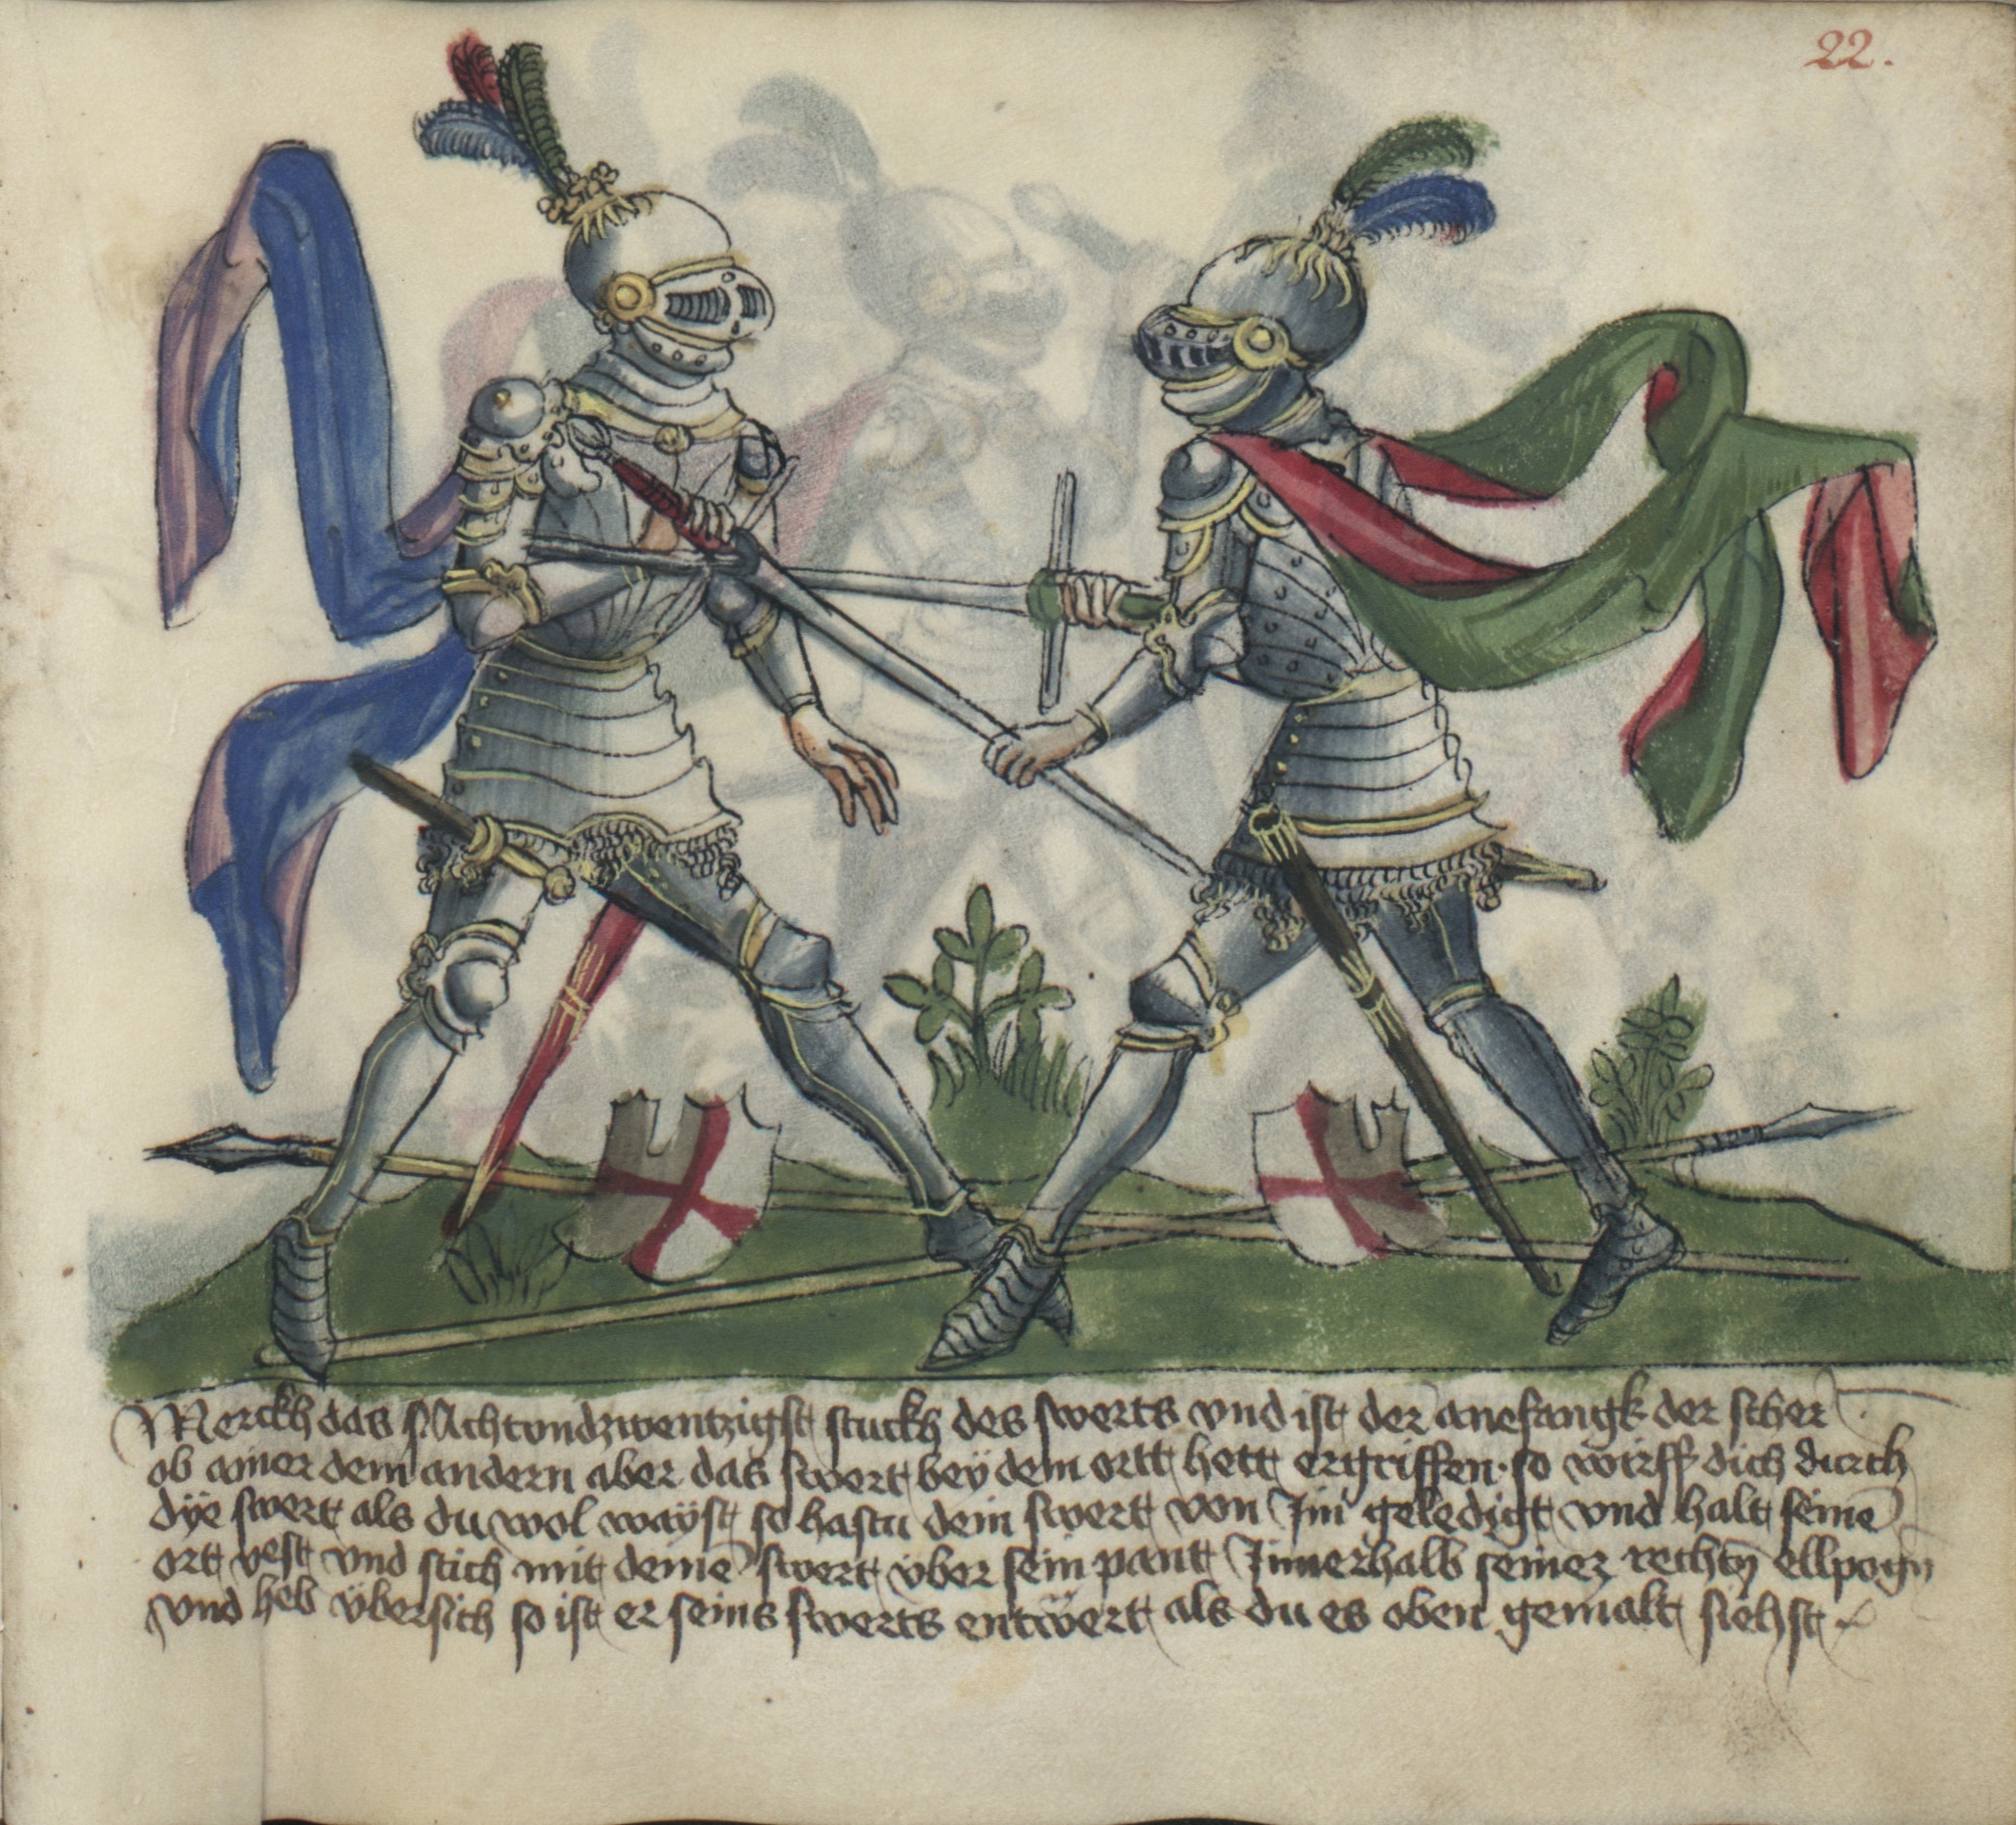 22.
Merckh das Achtvndzwentzigst stuckh des swerts vnd ist der anefangk der scher
ob ainer dem andern aber das swert beÿ dem ortt hett ergriffen so wirff dich durch
dÿe swert als du wol waÿst so hastu dein swert von Im geledigt vnd halt seine
ort vest vnd stich mit deine swert vber sein pant Innerhalb seiner rechtn ellpogn
vnd heb vbersich so ist er seins swerts entwert als du es oben gemalt siehst